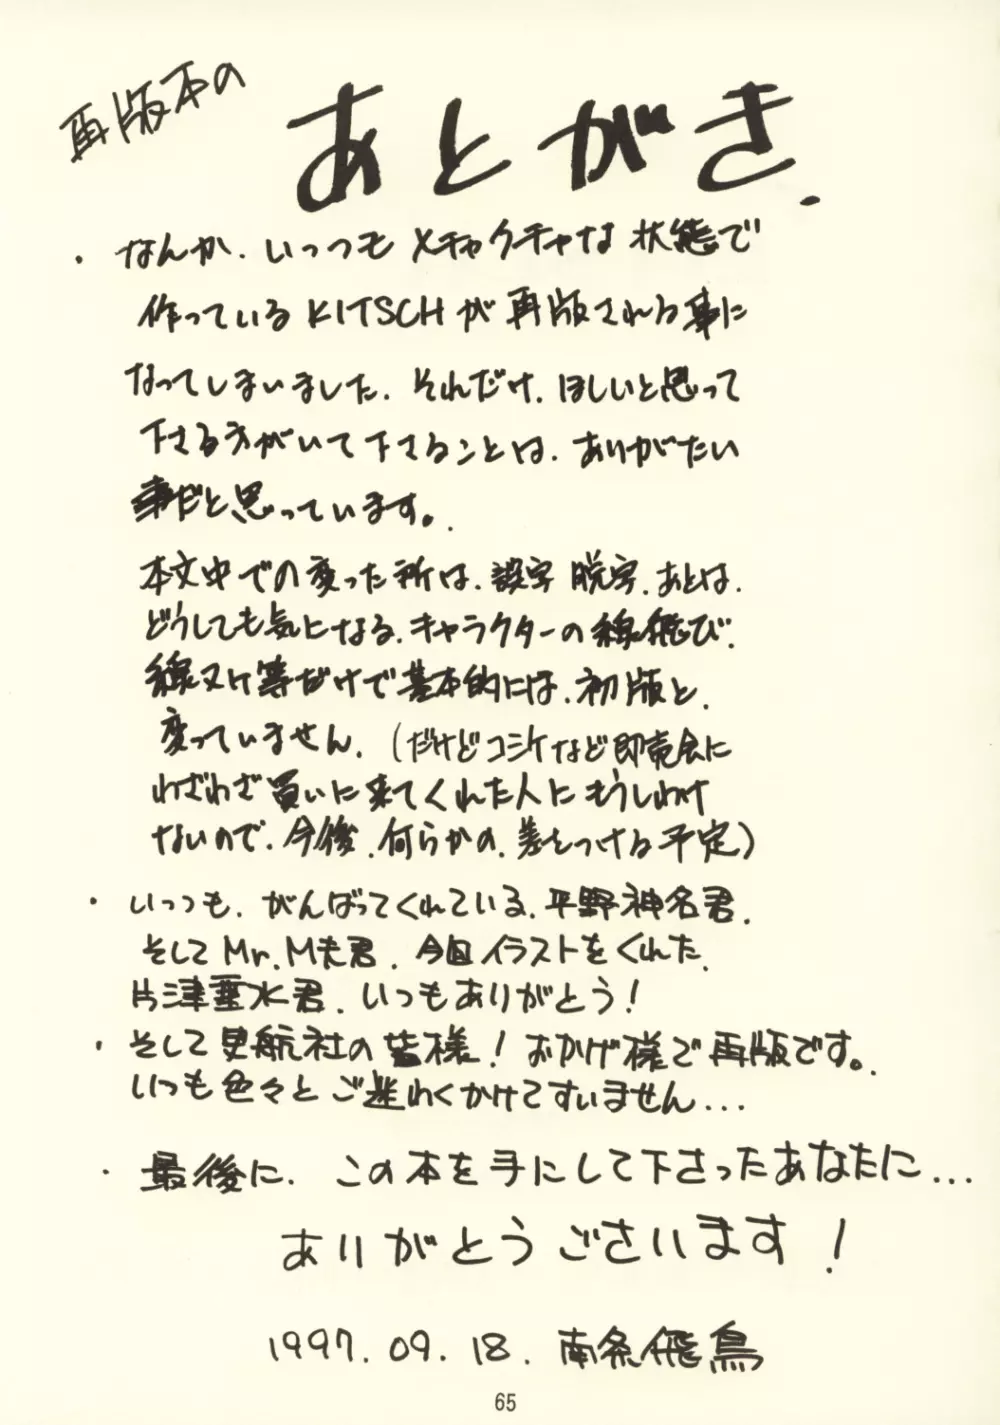 再版本の
あとがき.
・なんか、いっつもメチャクチャな状態で
作っているKITSCHが再版される事に
なってしまいました。それだけ、ほしいと思って
下さる方がいて下さるンとは、ありがたい
事だと思っています。
本文中での変った所は、誤字 脱字、あとは、
どうしても気になる、キャラクターの線飛び、
線ヌケ等だけで基本的には、初版と、
変っていません。(だけどコミケなど即売会に
わざわざ買いに来てくれた人にもうしわけ
ないので、今後、何らかの、差をつける予定)
・いっつも、がんばってくれている、平野神名君、
そしてMr.M夫君、今回イラストをくれた、
片津垂水君、いつもありがとう!
・そして 航社の皆様!おかげ様で再版です。
いつも色々とご迷わくかけてすいません...
・最後に、この本を手にして下さったあなたに...
ありがとうございます!
1997.09.18. 南条飛鳥
65